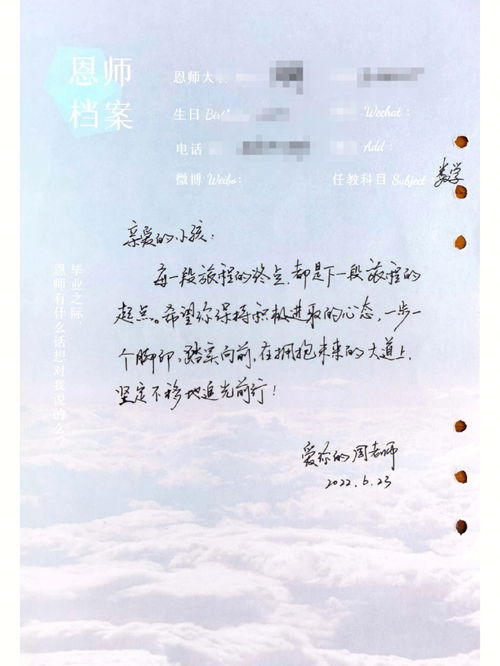 恩师
档案
恩师大
生日
Wechat：
电话
Add：
微博 Weibo：
任教科目 Subject
数学
亲爱的小孩：
每一段旅程的终点，都是下一段旅程的
起点。希望你保持积极进取的心态，一步一
个脚印，踏实向前，在拥抱未来的大道上，
坚定不移地追光前行！
爱你的周老师
2022.6.23
毕业之际
恩师有什么话想对我说的么？